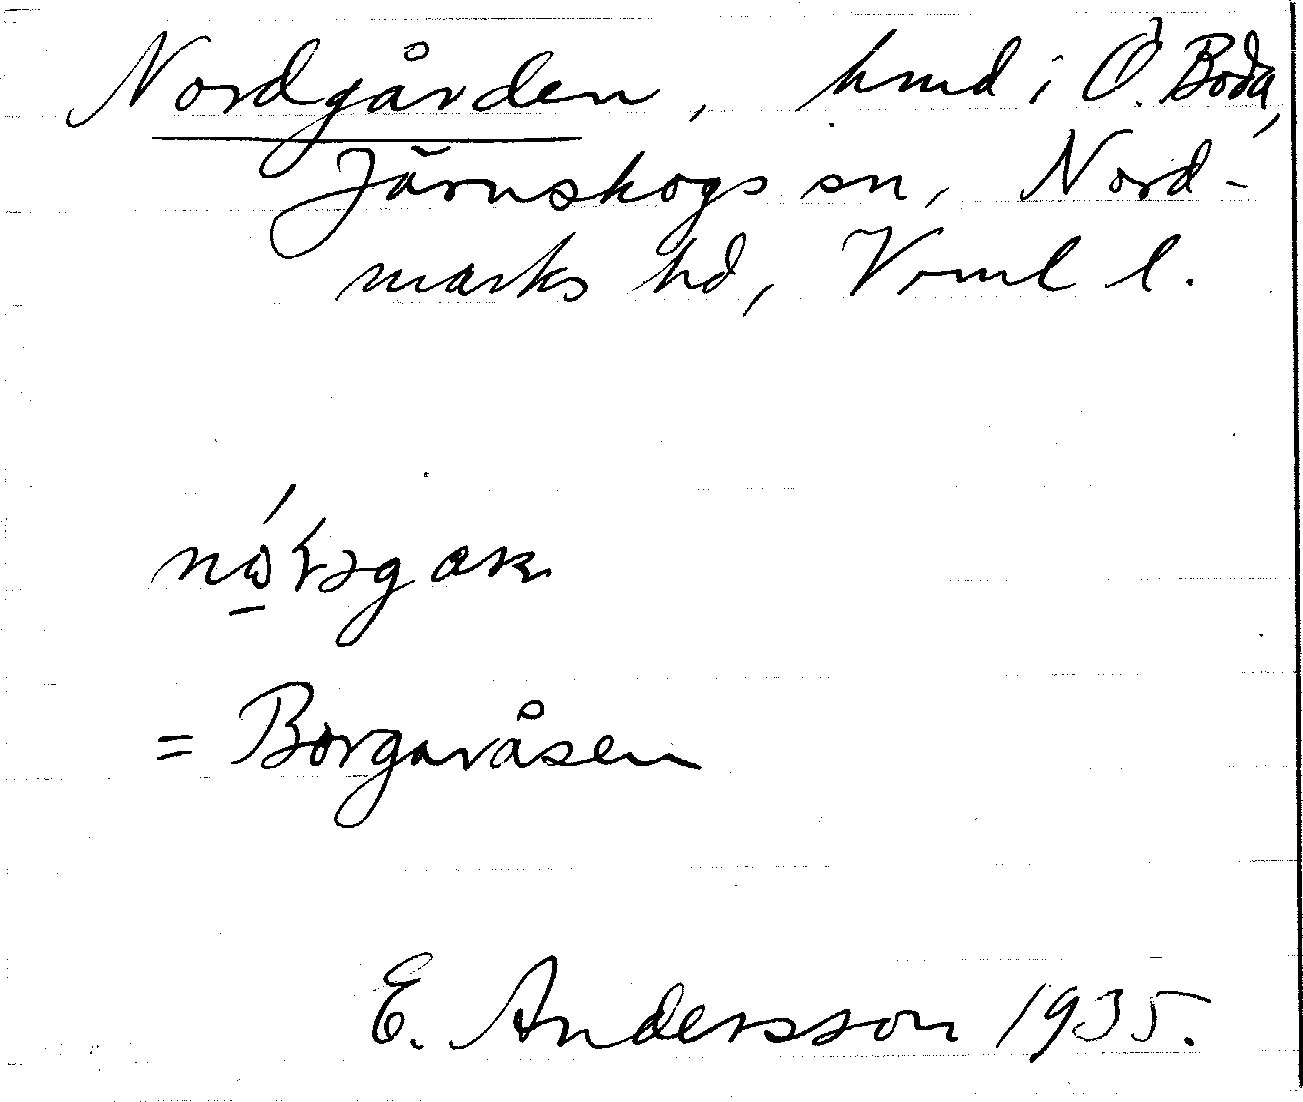 Nordgården, hmd i Ö. Boda,
Järnskogs sn, Nord-
marks hd, Vrml l.
= Borgaråsen
E. Andersson 1935.